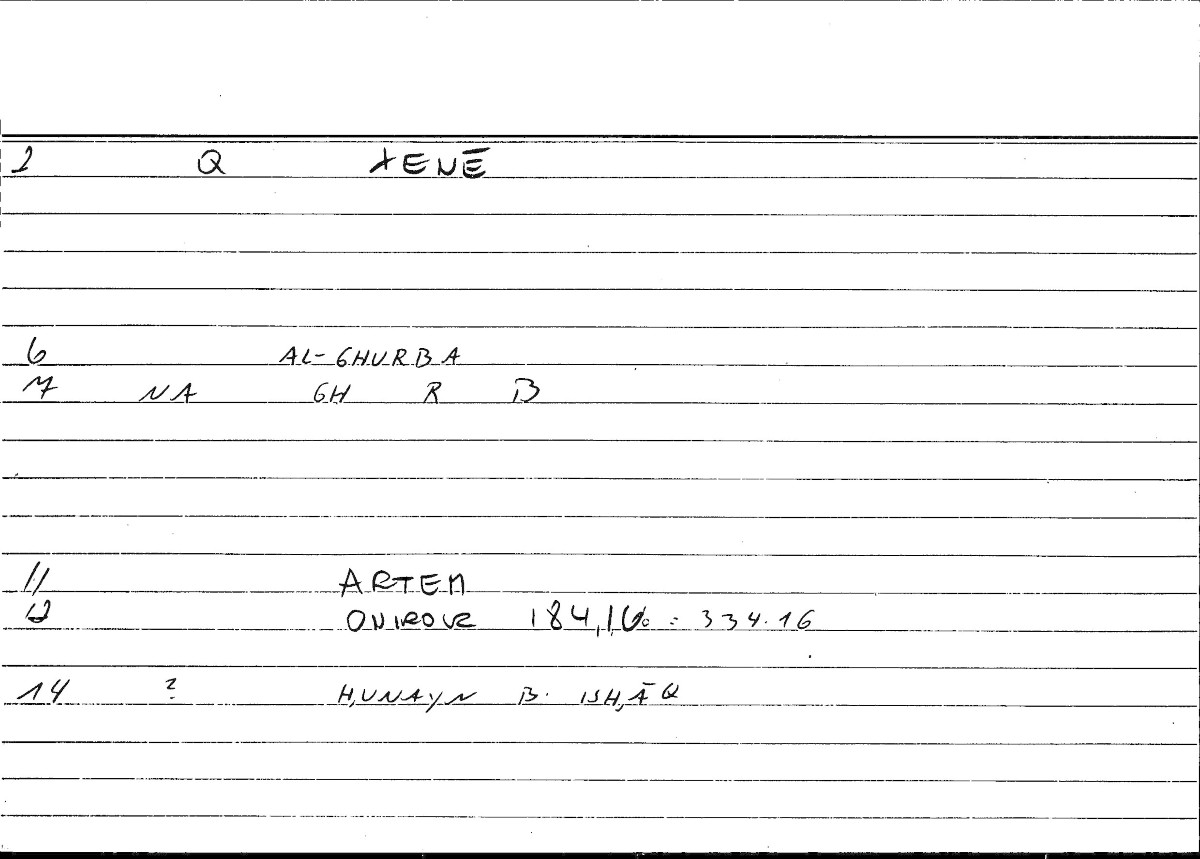 2 Q XENĒ
6 AL-GHURBA
7 NA GH R B
11 ARTEM
12 ONIROCR 184,16 = 334.16
14 ? H,UNAYN B. ISH,ĀQ